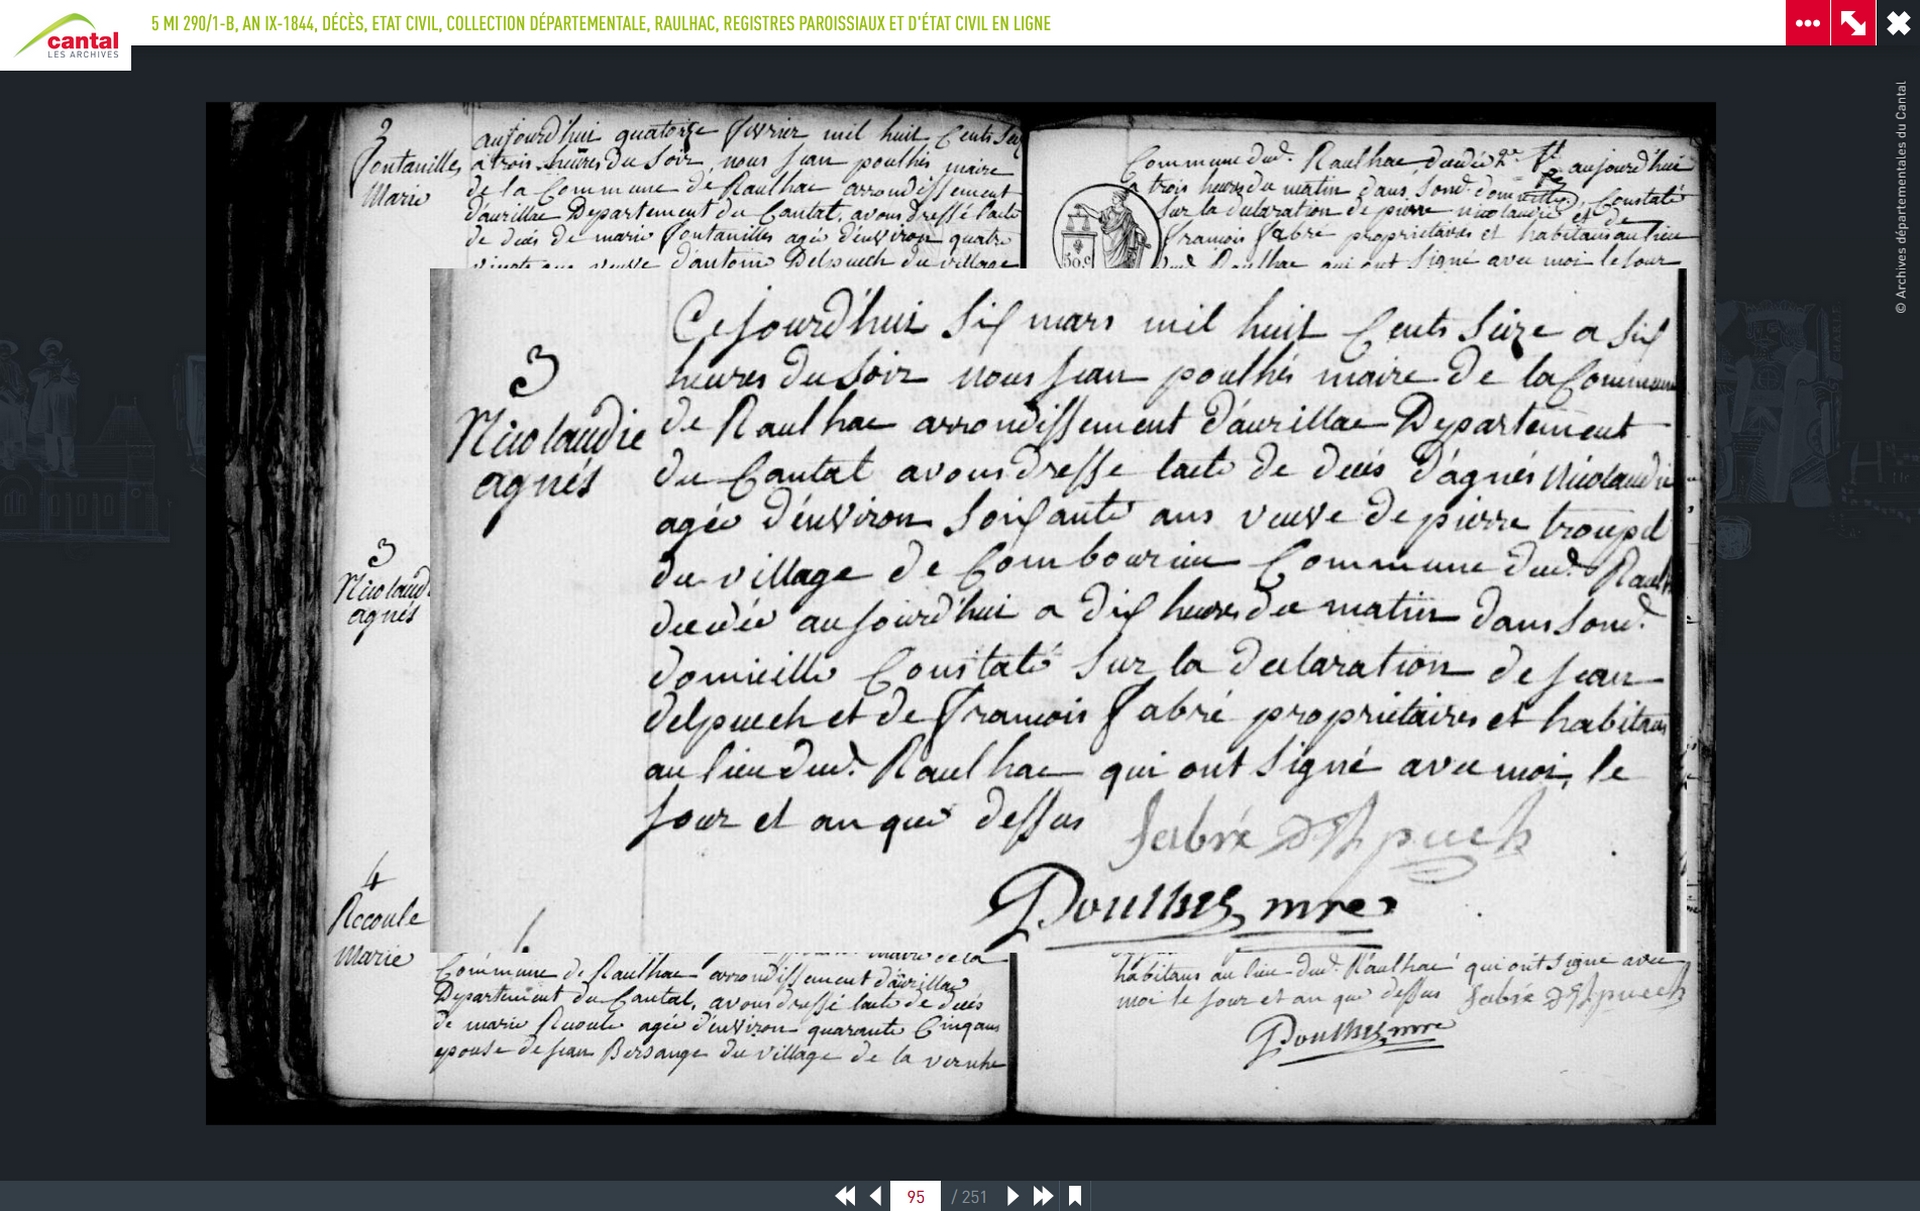 5 MI 290/1-B, AN IX-1844, DÉCÈS, ETAT CIVIL, COLLECTION DÉPARTEMENTALE, RAULHAC, REGISTRES PAROISSIAUX ET D'ÉTAT CIVIL EN LIGNE
cantal
LES ARCHIVES
© Archives départementales du Cantal
3
fontanilles
Marie
aujourd'hui quatorze fevrier mil huit Cents
a trois heures du Soir, nous jean poulhés maire
de la Commune de Raulhac arrondissement
d'aurillac Departement du Cantal, avons dressé l'acte
de decés de marie fontanilles agée d'environ quatre
vingts ans veuve d'antoine Delpuech du village
Commune dud. Raulhac decedée aujourd'hui
a trois heures du matin dans Sond. domicille, Constaté
Sur la declaration de pierre nicolaudie et de
francois fabré proprietaires et habitans au lieu
dud. Raulhac qui ont Signé avec moi le jour
50.c
3
Nicolaudie
agnés
Cejourd'hui Six mars mil huit Cents Seize a Six
heures du Soir nous jean poulhés maire de la Commune
de Raulhac arrondissement d'aurillac Departement
du Cantal avons dresse lacte de decés d'agnés Nicolaudie
agée d'environ Soixante ans veuve de pierre troupel
du village de Combourieu Commune dud. Raulh
decedée aujourd'hui a dix heures du matin dans Sond.
domicille Constaté Sur la declaration de jean
delpuech et de francois fabré proprietaires et habitans
au lieu dud. Raulhac qui ont Signé avec moi, le
jour et an que dessus
fabré Delpuech
Poulhes mre
3
Nicolaud
agnés
4
Recoule
Marie
maire de la
Commune de Raulhac arrondissement d'aurillac
Departement du Cantal, avons dressé lacte de decés
de marie Recoule agée d'environ quarante Cinq ans
epouse de jean Bersange du village de la
habitans au lieu dud. Raulhac qui ont Signe avec
moi le jour et an que dessus fabré Delpuech
Poulhes mre
95
/ 251